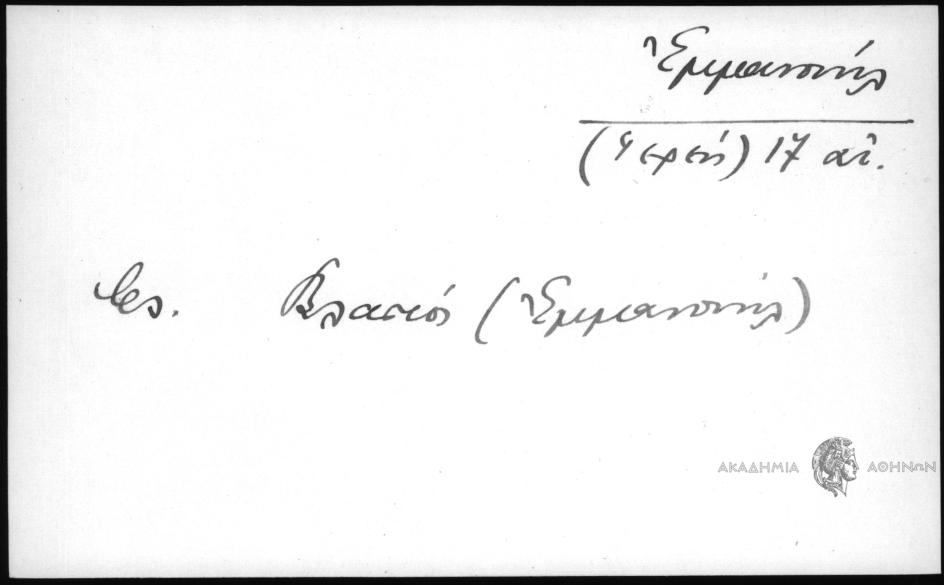 Ἐμμανουήλ
(ἱερεύς) 17 αἰ.
βλ. Βλαστός (Ἐμμανουήλ)
ΑΚΑΔΗΜΙΑ ΑΘΗΝΩΝ